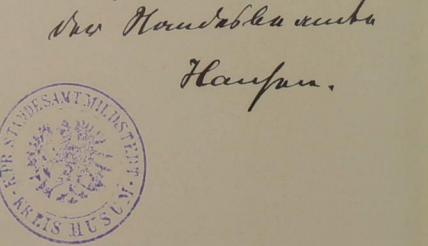 der Standesbeamte
Hansen.
K. PR. STANDESAMT MILDSTEDT
KREIS HUSUM